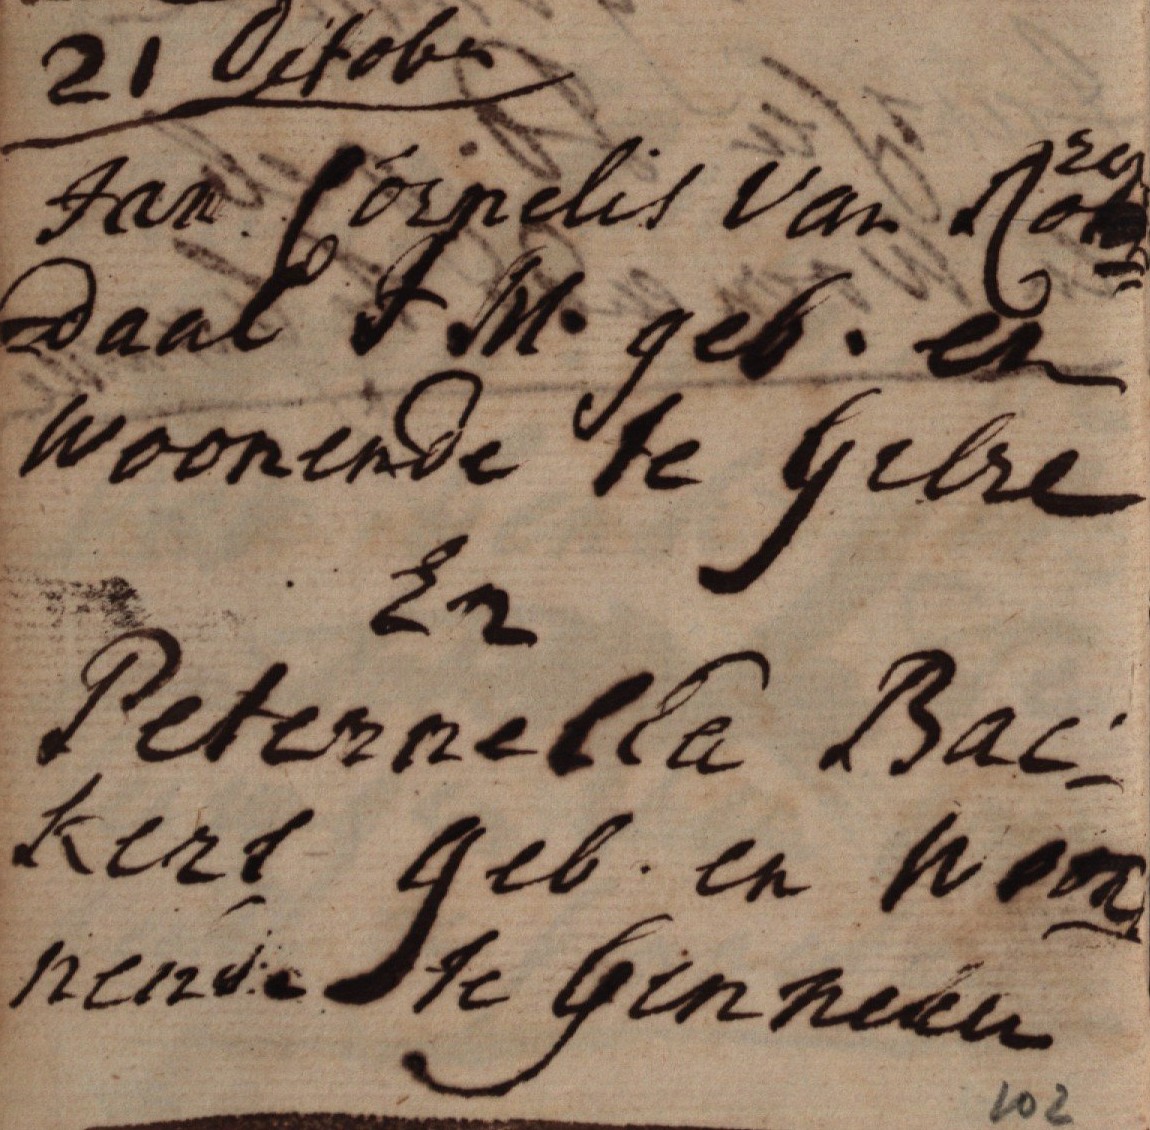 21 October
Jan Cornelis van
Daal J M. geb. en
woonende te Gilze
En
Peternella Bac-
kers geb. en woo
nende te Ginneken
102